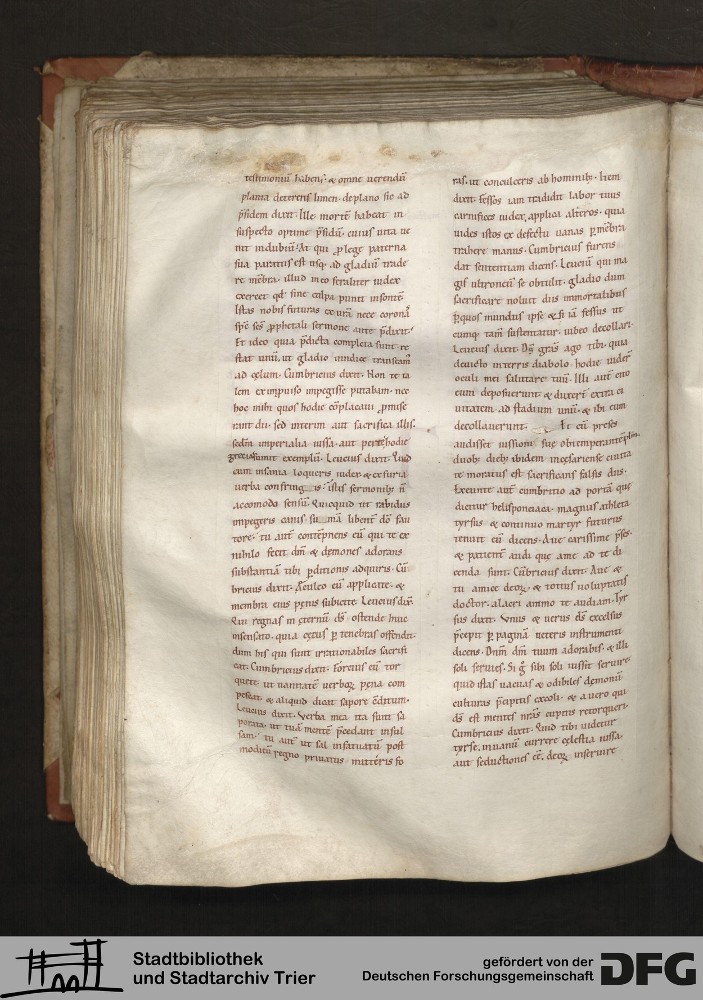 testimoniū habens & omne uerendū
planta deterens limen. deplano sic ad
p̄sidem dixit. Ille mortē habeat in
suspecto optime p̄sidū. cuius uita ue
nit indubiū. At qui ꝓ lege paterna
sua paratus est usq; ad gladiū trade
re mēbra. illud in eo feraliter iudex
exercet qd̄ sine culpa punit insontē.
Istas nobis futuras ex urā nece coronā
sp̄c sc̄s ꝓphetali sermone ante p̄dixit.
Et ideo quia p̄dicta completa sunt re
stat unū. ut gladio uindice transeam
ad cęlum. Cumbricius dixit. Non te ta
lem ex inpuiso impegisse putabam. nec
hoc mihi quos hodie cōplacaui ꝓmise
runt dii. sed interim aut sacrifica illis.
sedm̄ imperialia iussa. aut hodie
sumit exemplū. Leucius dixit. Quid
cum insania loqueris iudex & ex furia
uerba confringis. istis sermonib; n̄
accomodo sensū. Quicquid ut rabidus
impegeris canis sū mā libent do fau
tore. tu aut contēpnens eū qui te ex
nihilo fecit dm̄ & demones adorans
substantiā tibi p̄ditionis adquiris. Cū
bricius dixit. Aculeo eū applicate. &
membra eius pęnis subicite. Leucius dix̄.
Qui regnas in ęternū ds̄ ostende huic
insensato. quia cęcus p̄ tenebras offendit.
dum his qui sunt irrationabiles sacrifi
cat. Cumbricius dixit. Forcius eū tor
quete ut uanitatē uerboꝝ pęna com
pescat. & aliquid dicat sapore cōditum.
Leucius dixit. Verba mea ita sunt sa
porata. ut tuā mentē p̄cedant insul
sam. tu aut ut sal infatuatū post
modicū regno priuatus. mitteris fo
ras. ut conculceris ab hominib;. Item
dixit. Fessos iam tradidit labor tuus
carnifices iudex. applica alteros. quia
uides istos ex defectu uanas p̄ mēbra
trahere manus. Cumbricius furens
dat sententiam dicens. Leuciū qui ma
gis ultroneū se obtulit. gladio dum
sacrificare noluit diis inmortalibus
p̄ quos mundus ipse & si iā fessus ut
cumq; tam̄ sustentatur. iubeo decollari.
Leucius dixit. Dn̄e grās ago tibi. quia
deuicto in terris diabolo. hodie uider̄
oculi mei salutare tuū. Illi aut cito
eum deposuerunt & duxerūt extra ci
uitatem. ad stadium unū. & ibi eum
decollauerunt. Et cū preses
audisset iussioni suę obtemperantē
duob; dieb; ibidem męęsariense ciuita
te moratus est sacrificans falsis diis.
Exeunte aut cumbritio ad portā quę
dicitur helisponciaca. magnus athleta
tyrsus & continuo martyr futurus
tenuit eū dicens. Aue carissime p̄ses.
& patient̄ audi quę a me ad te di
cenda sunt. Cūbricius dixit. Aue &
tu amice deoꝝ. & totius uoluptatis
doctor. alacri animo te audiam. Tyr
sus dixit. Vnus & uerus ds̄ excelsus
p̄cepit p̄ paginā ueteris instrumenti
dicens. Dnm̄ dm̄ tuum adorabis. & illi
soli seruies. Si g̊ sibi soli iussit seruire.
quid istas uacuas & odibiles demonū
culturas p̄cipitis excoli. & a uero qui
ds̄ est mentes nrās cupitis retorqueri.
Cumbricius dixit. Quid tibi uidetur
tyrse. in uanū currere cęlestia iussa.
aut seductiones eē. deoꝝ inseruire
Stadtbibliothek
und Stadtarchiv Trier
gefördert von der
Deutschen Forschungsgemeinschaft
DFG